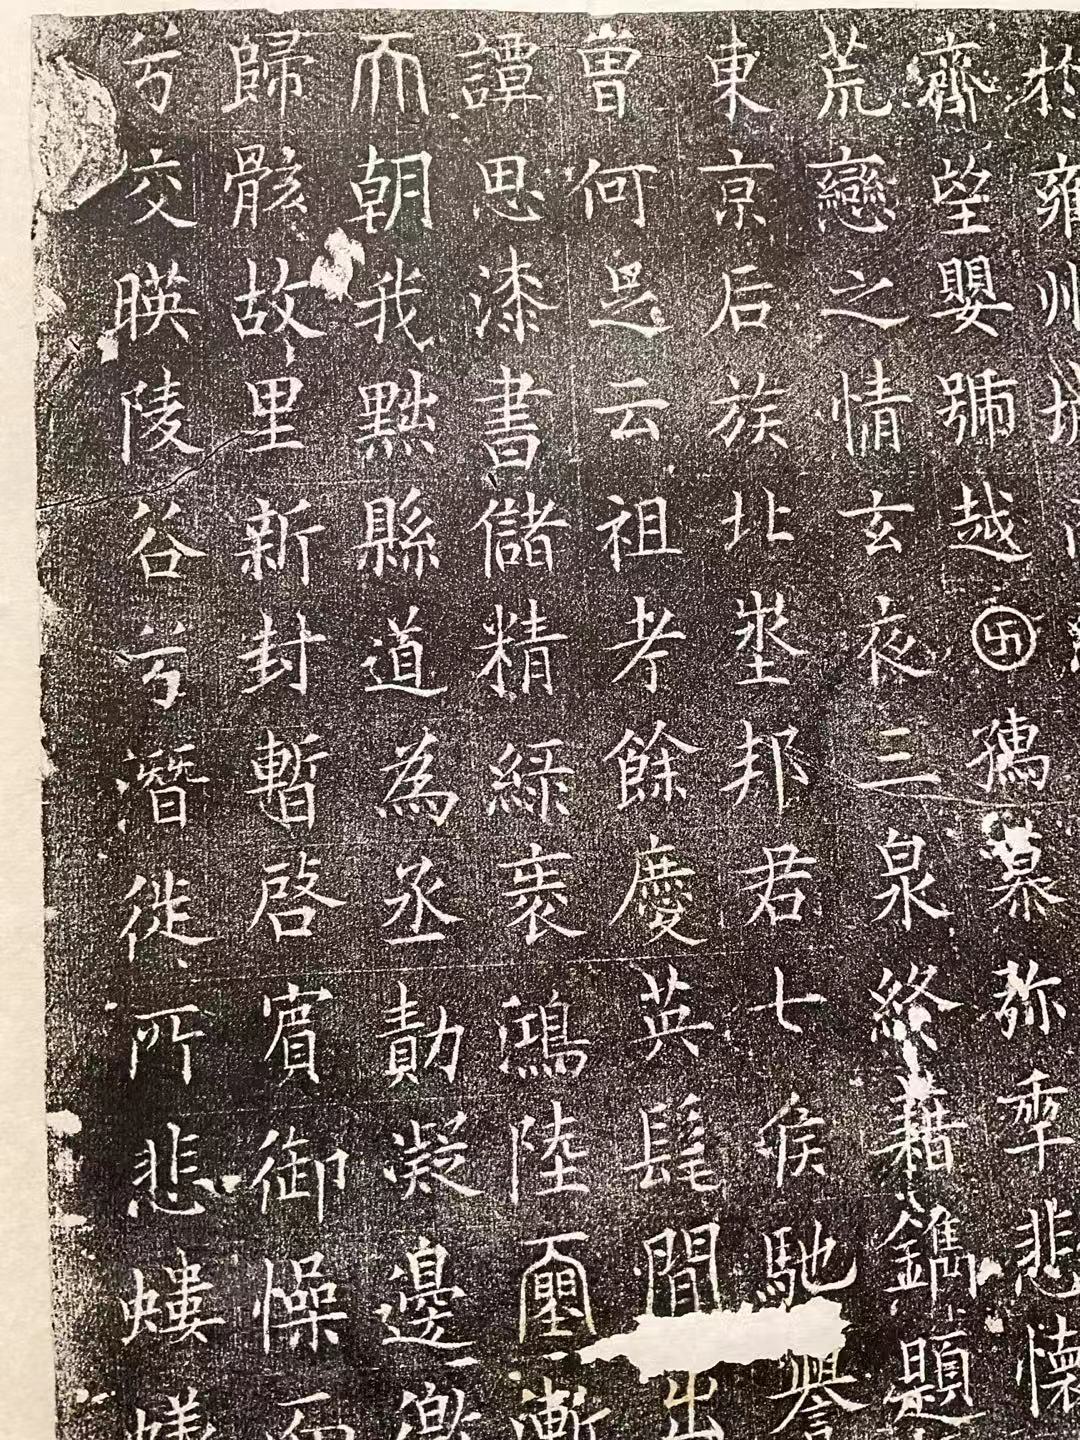 於雍州城
齊望嬰號越卍孺慕弥𠡦悲懷
荒戀之情玄夜三泉終藉鐫題
東京后族北埊邦君七侯馳譽
曾何足云祖考餘慶英髦間出
譚思漆書儲精緑袠鴻陸𡔈漸
𠀑朝我黜縣道為丞勣凝邊徼
歸骸故里新封暫啓賓御懆而
兮交暎陵谷兮潛徙所悲螻蟻